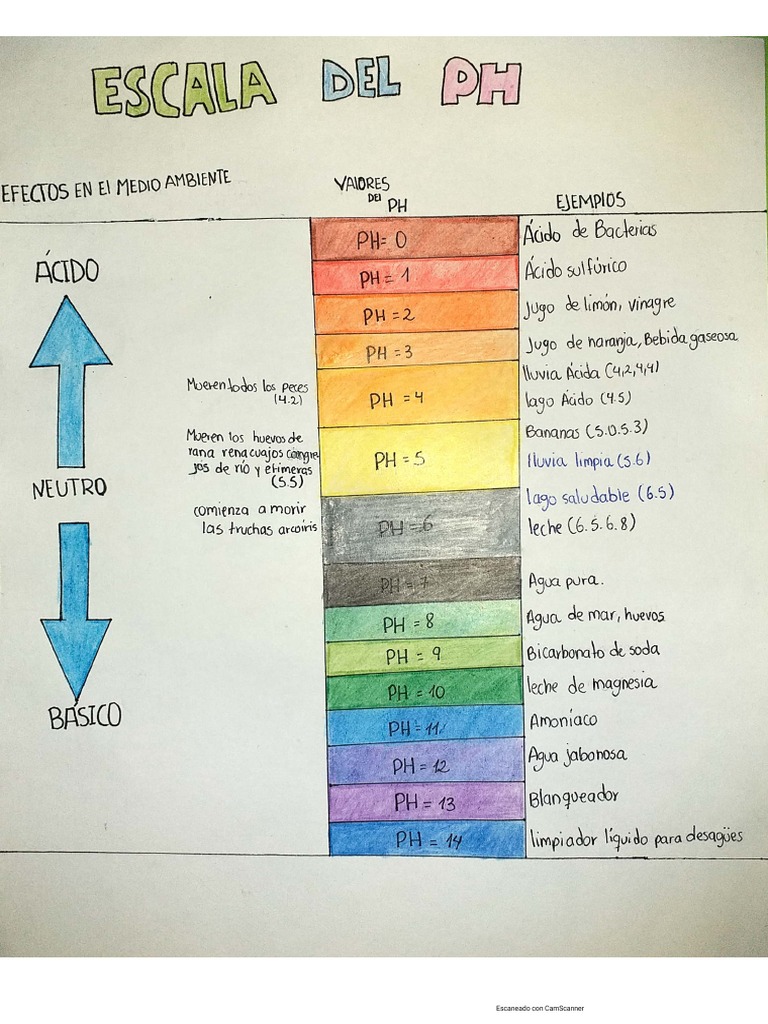 ESCALA DEL PH
EFECTOS EN El MEDIO AMBIENTE
VAlORES
DEl
PH
EJEMPlOS
ÁCIDO
NEUTRO
BÁSICO
Mueren todos los peces
(4.2)
Mueren los huevos de
rana renacuajos cangre
jos de río y efimeras
(5.5)
comienza a morir
las truchas arcoíris
PH= 0
Ácido de Bacterias
PH= 1
Ácido sulfúrico
PH = 2
Jugo de limón, vinagre
PH = 3
Jugo de naranja, Bebida gaseosa
PH = 4
lluvia Ácida (4,2,4,4)
lago Ácido (4.5)
PH = 5
Bananas (5.0.5.3)
lluvia limpia (5.6)
PH = 6
lago saludable (6.5)
leche (6.5.6.8)
PH = 7
Agua pura.
PH = 8
Agua de mar, huevos
PH = 9
Bicarbonato de soda
PH = 10
leche de magnesia
PH = 11
Amoníaco
PH = 12
Agua jabonosa
PH = 13
Blanqueador
PH = 14
limpiador líquido para desagües
Escaneado con CamScanner